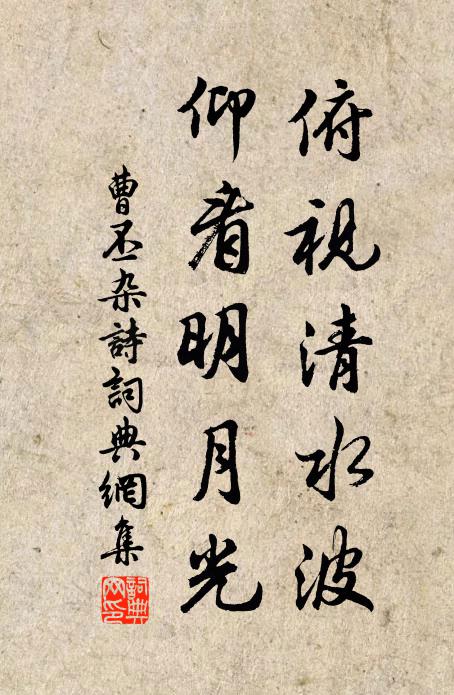 俯視清水波
仰看明月光
曹丕杂詩詞典網集
詞典网印